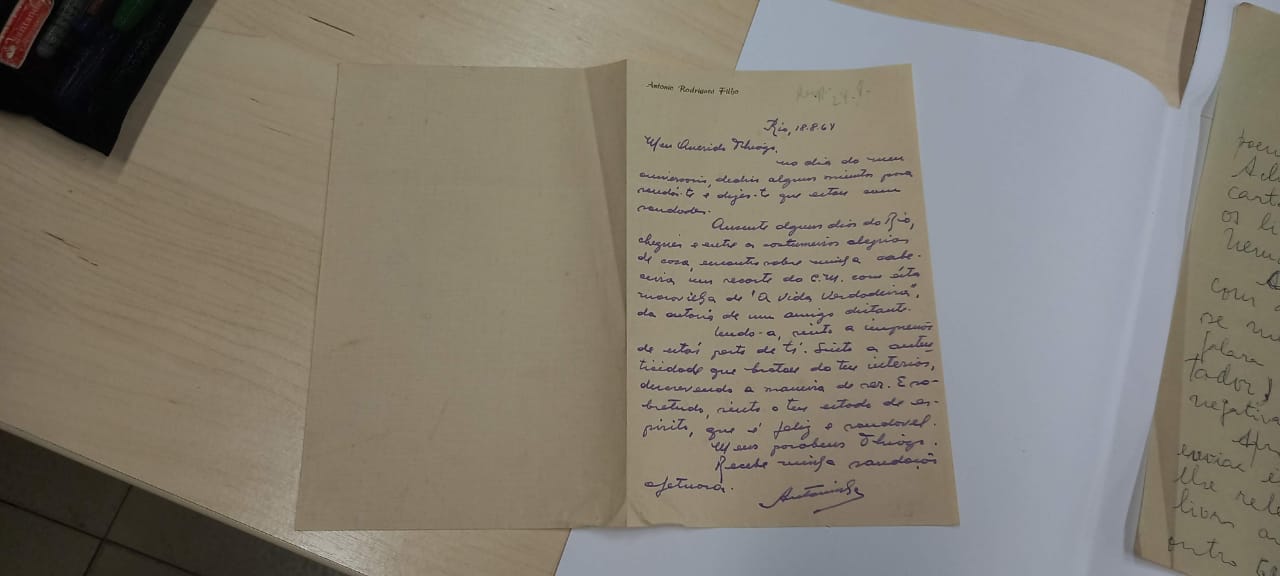 Antonio Rodrigues Filho
Rio, 18.8.64
Meu Querido Thiago,
no dia do meu
aniversario, dedico alguns minutos para
saudá-te e dizer-te que estou com
saudades.
Ausente alguns dias do Rio,
cheguei e entre as costumeiras alegrias
de casa, encontro sobre minha cabe-
ceira um recorte do C.M. com esta
maravilha de "A Vida Verdadeira",
da autoria de um amigo distante.
Lendo-a, sinto a impressão
de estar perto de ti. Sinto a auten-
ticidade que brotou do teu interior,
descrevendo a maneira de ser. E so-
bretudo, sinto o teu estado de es-
pirito, que é feliz e saudavel.
Meus parabens Thiago.
Recebe minha saudação
afetuosa.
Antoninho
poem
cart
os li
com
se
falara
tador!
negativa
enviar e
lhe rele
livros
outro